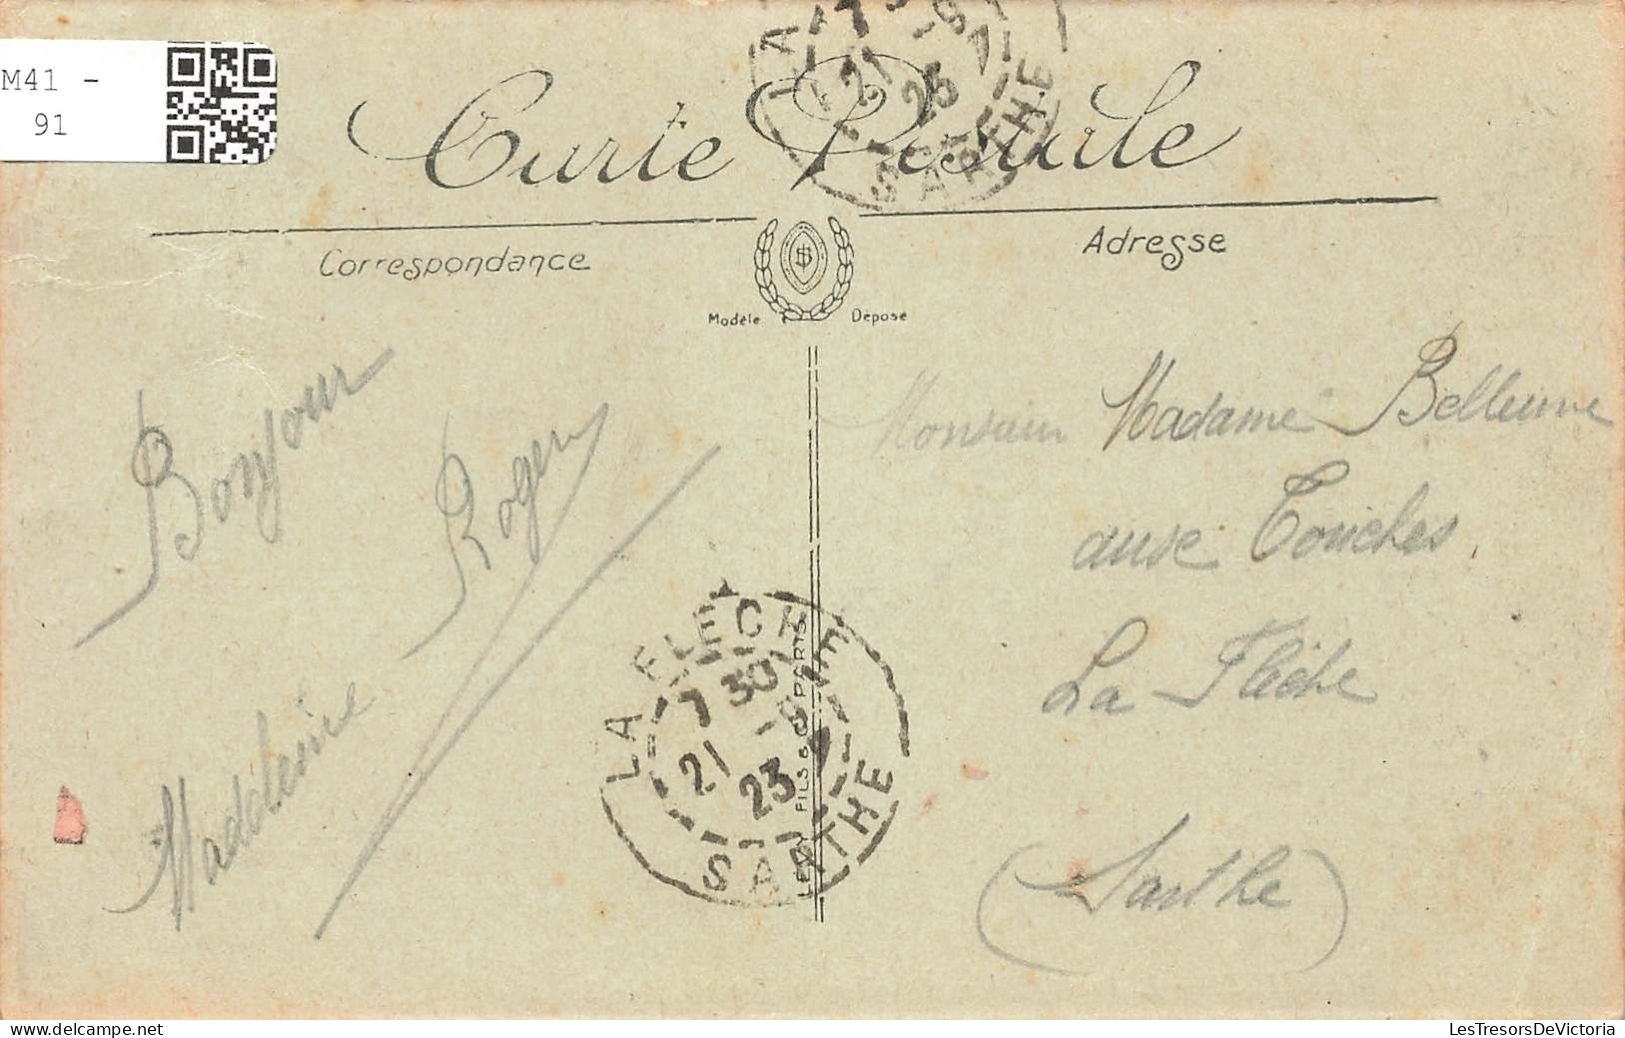 M41 -
91
Carte Postale
Correspondance
Adresse
Modèle Déposé
Bonjour
Roger
Madeleine
Monsieur Madame Belleuvre
aux Touches
La Flèche
(Sarthe)
LA FLECHE
7 30
21 -9
23
SARTHE
LA
7
21 -9
23
SARTHE
LEVY FILS & Cie PARIS
www.delcampe.net
LesTresorsDeVictoria